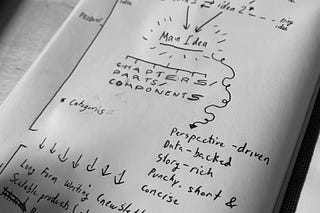 PRODUCE
idea 2
big
idea
Man Idea
CHAPTERS/
PARTS/
COMPONENTS
* Categories
Perspective-driven
Data-backed
Story-rich
Punchy, short &
concise
Long form writing (newslett
Scalable products (